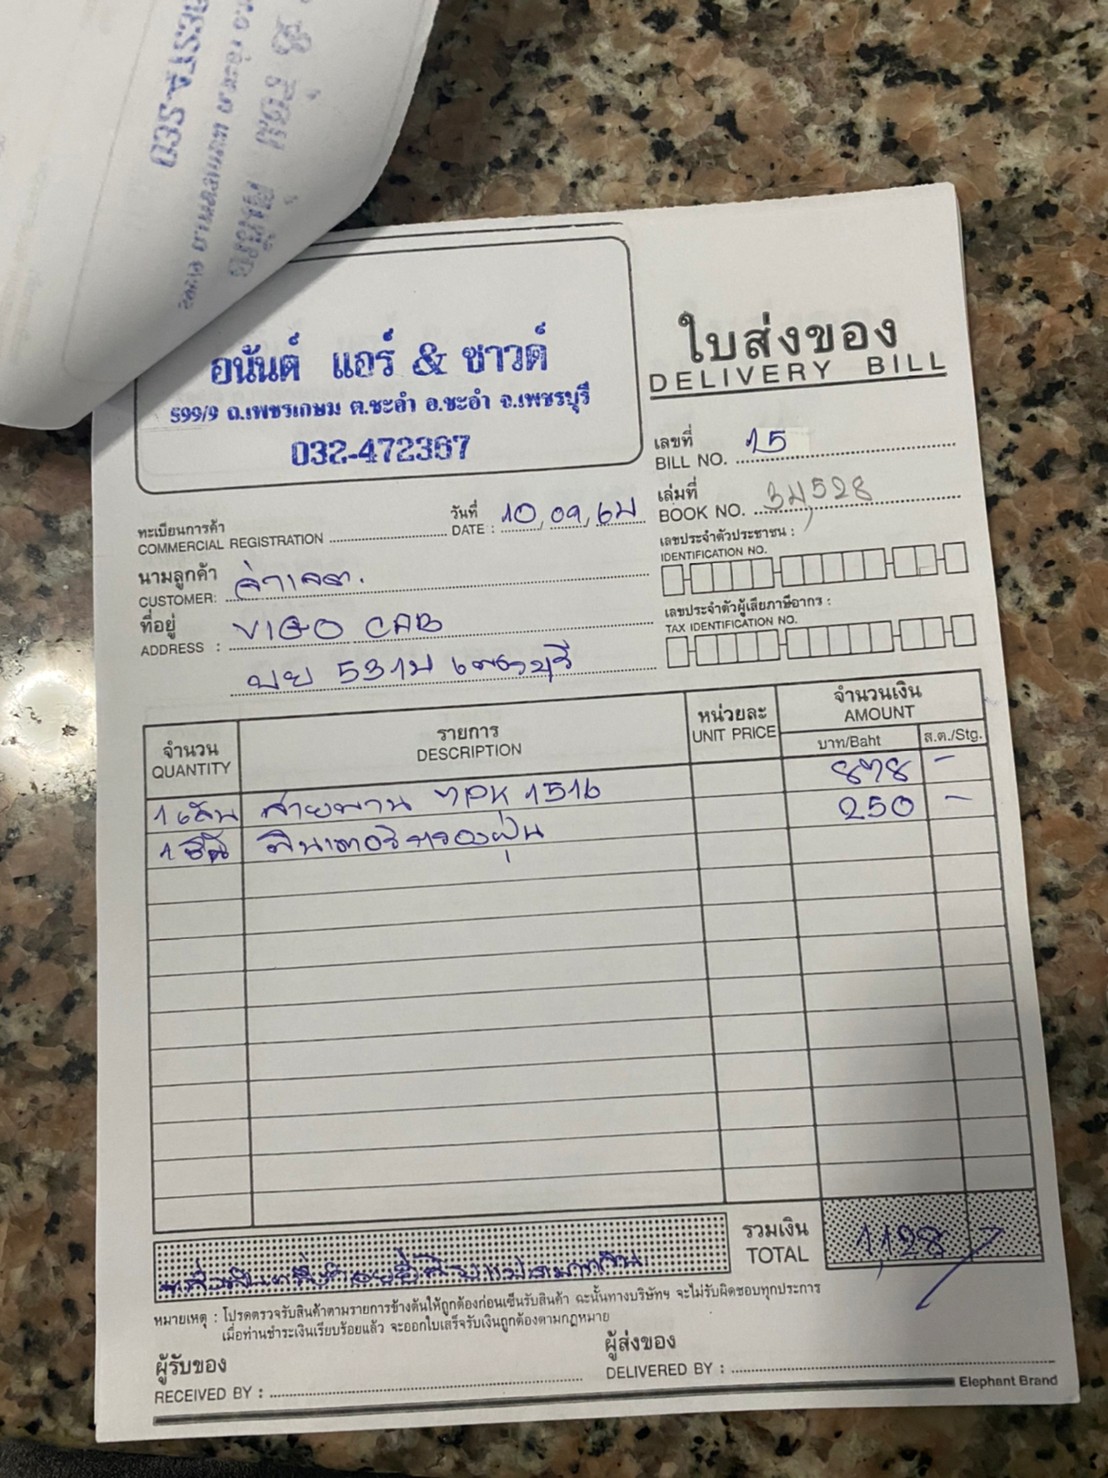 อนันต์ แอร์ & ซาวด์
599/9 ถ.เพชรเกษม ต.ชะอำ อ.ชะอำ จ.เพชรบุรี
032-472367
ใบส่งของ
DELIVERY BILL
เลขที่
BILL NO. 15
เล่มที่
BOOK NO.
ทะเบียนการค้า
COMMERCIAL REGISTRATION
วันที่
DATE : 10, 09,
เลขประจำตัวประชาชน :
IDENTIFICATION NO.
นามลูกค้า
CUSTOMER:
ที่อยู่
ADDRESS : VIGO CAB
เลขประจำตัวผู้เสียภาษีอากร :
TAX IDENTIFICATION NO.
เพชรบุรี
จำนวน
QUANTITY
รายการ
DESCRIPTION
หน่วยละ
UNIT PRICE
จำนวนเงิน
AMOUNT
บาท/Baht
ส.ต./Stg.
1 เส้น สายพาน 7PK 1516 878 -
1 ชิ้น ฟิวเตอร์กรองฝุ่น 250 -
รวมเงิน
TOTAL
1,128
หมายเหตุ : โปรดตรวจรับสินค้าตามรายการข้างต้นให้ถูกต้องก่อนเซ็นรับสินค้า ฉะนั้นทางบริษัทฯ จะไม่รับผิดชอบทุกประการ
เมื่อท่านชำระเงินเรียบร้อยแล้ว จะออกใบเสร็จรับเงินถูกต้องตามกฎหมาย
ผู้รับของ
RECEIVED BY :
ผู้ส่งของ
DELIVERED BY :
Elephant Brand